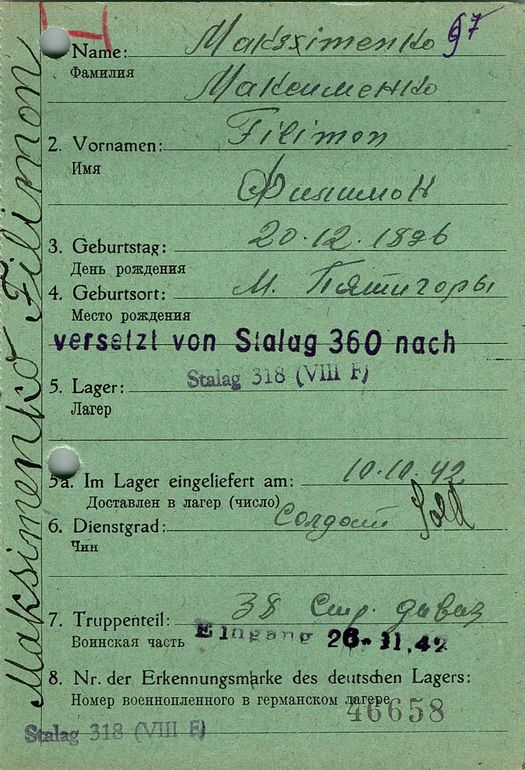 Name: Maksximenko 97
Фамилия Максименко
2. Vornamen: Filimon
Имя
Филимон
3. Geburtstag: 20.12.1896
День рождения
4. Geburtsort: м. Пятигоры
Место рождения
versetzt von Stalag 360 nach
5. Lager: Stalag 318 (VIII F)
Лагер
5a. Im Lager eingeliefert am: 10.10.42
Доставлен в лагер (число)
6. Dienstgrad: Солдат Sold
Чин
7. Truppenteil: 38 Стр. дивиз
Воинская часть Eingang 26.11.42
8. Nr. der Erkennungsmarke des deutschen Lagers:
Номер военнопленного в германском лагере
46658
Stalag 318 (VIII F)
Maksimenko Filimon